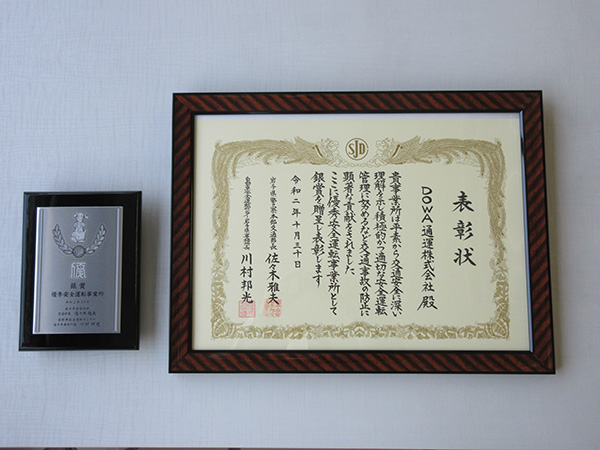 SJD
表彰状
DOWA通運株式会社 殿
貴事業所は平素から交通安全に深い
理解を示し積極的かつ適切な安全運転
管理に努めるなど交通事故の防止に
顕著な貢献をされました
ここに優秀安全運転事業所として
銀賞を贈呈し表彰します
令和二年十月三十日
岩手県警察本部交通部長 佐々木雅夫
自動車安全運転センター岩手県事務所長 川村邦光
銀賞
優秀安全運転事業所